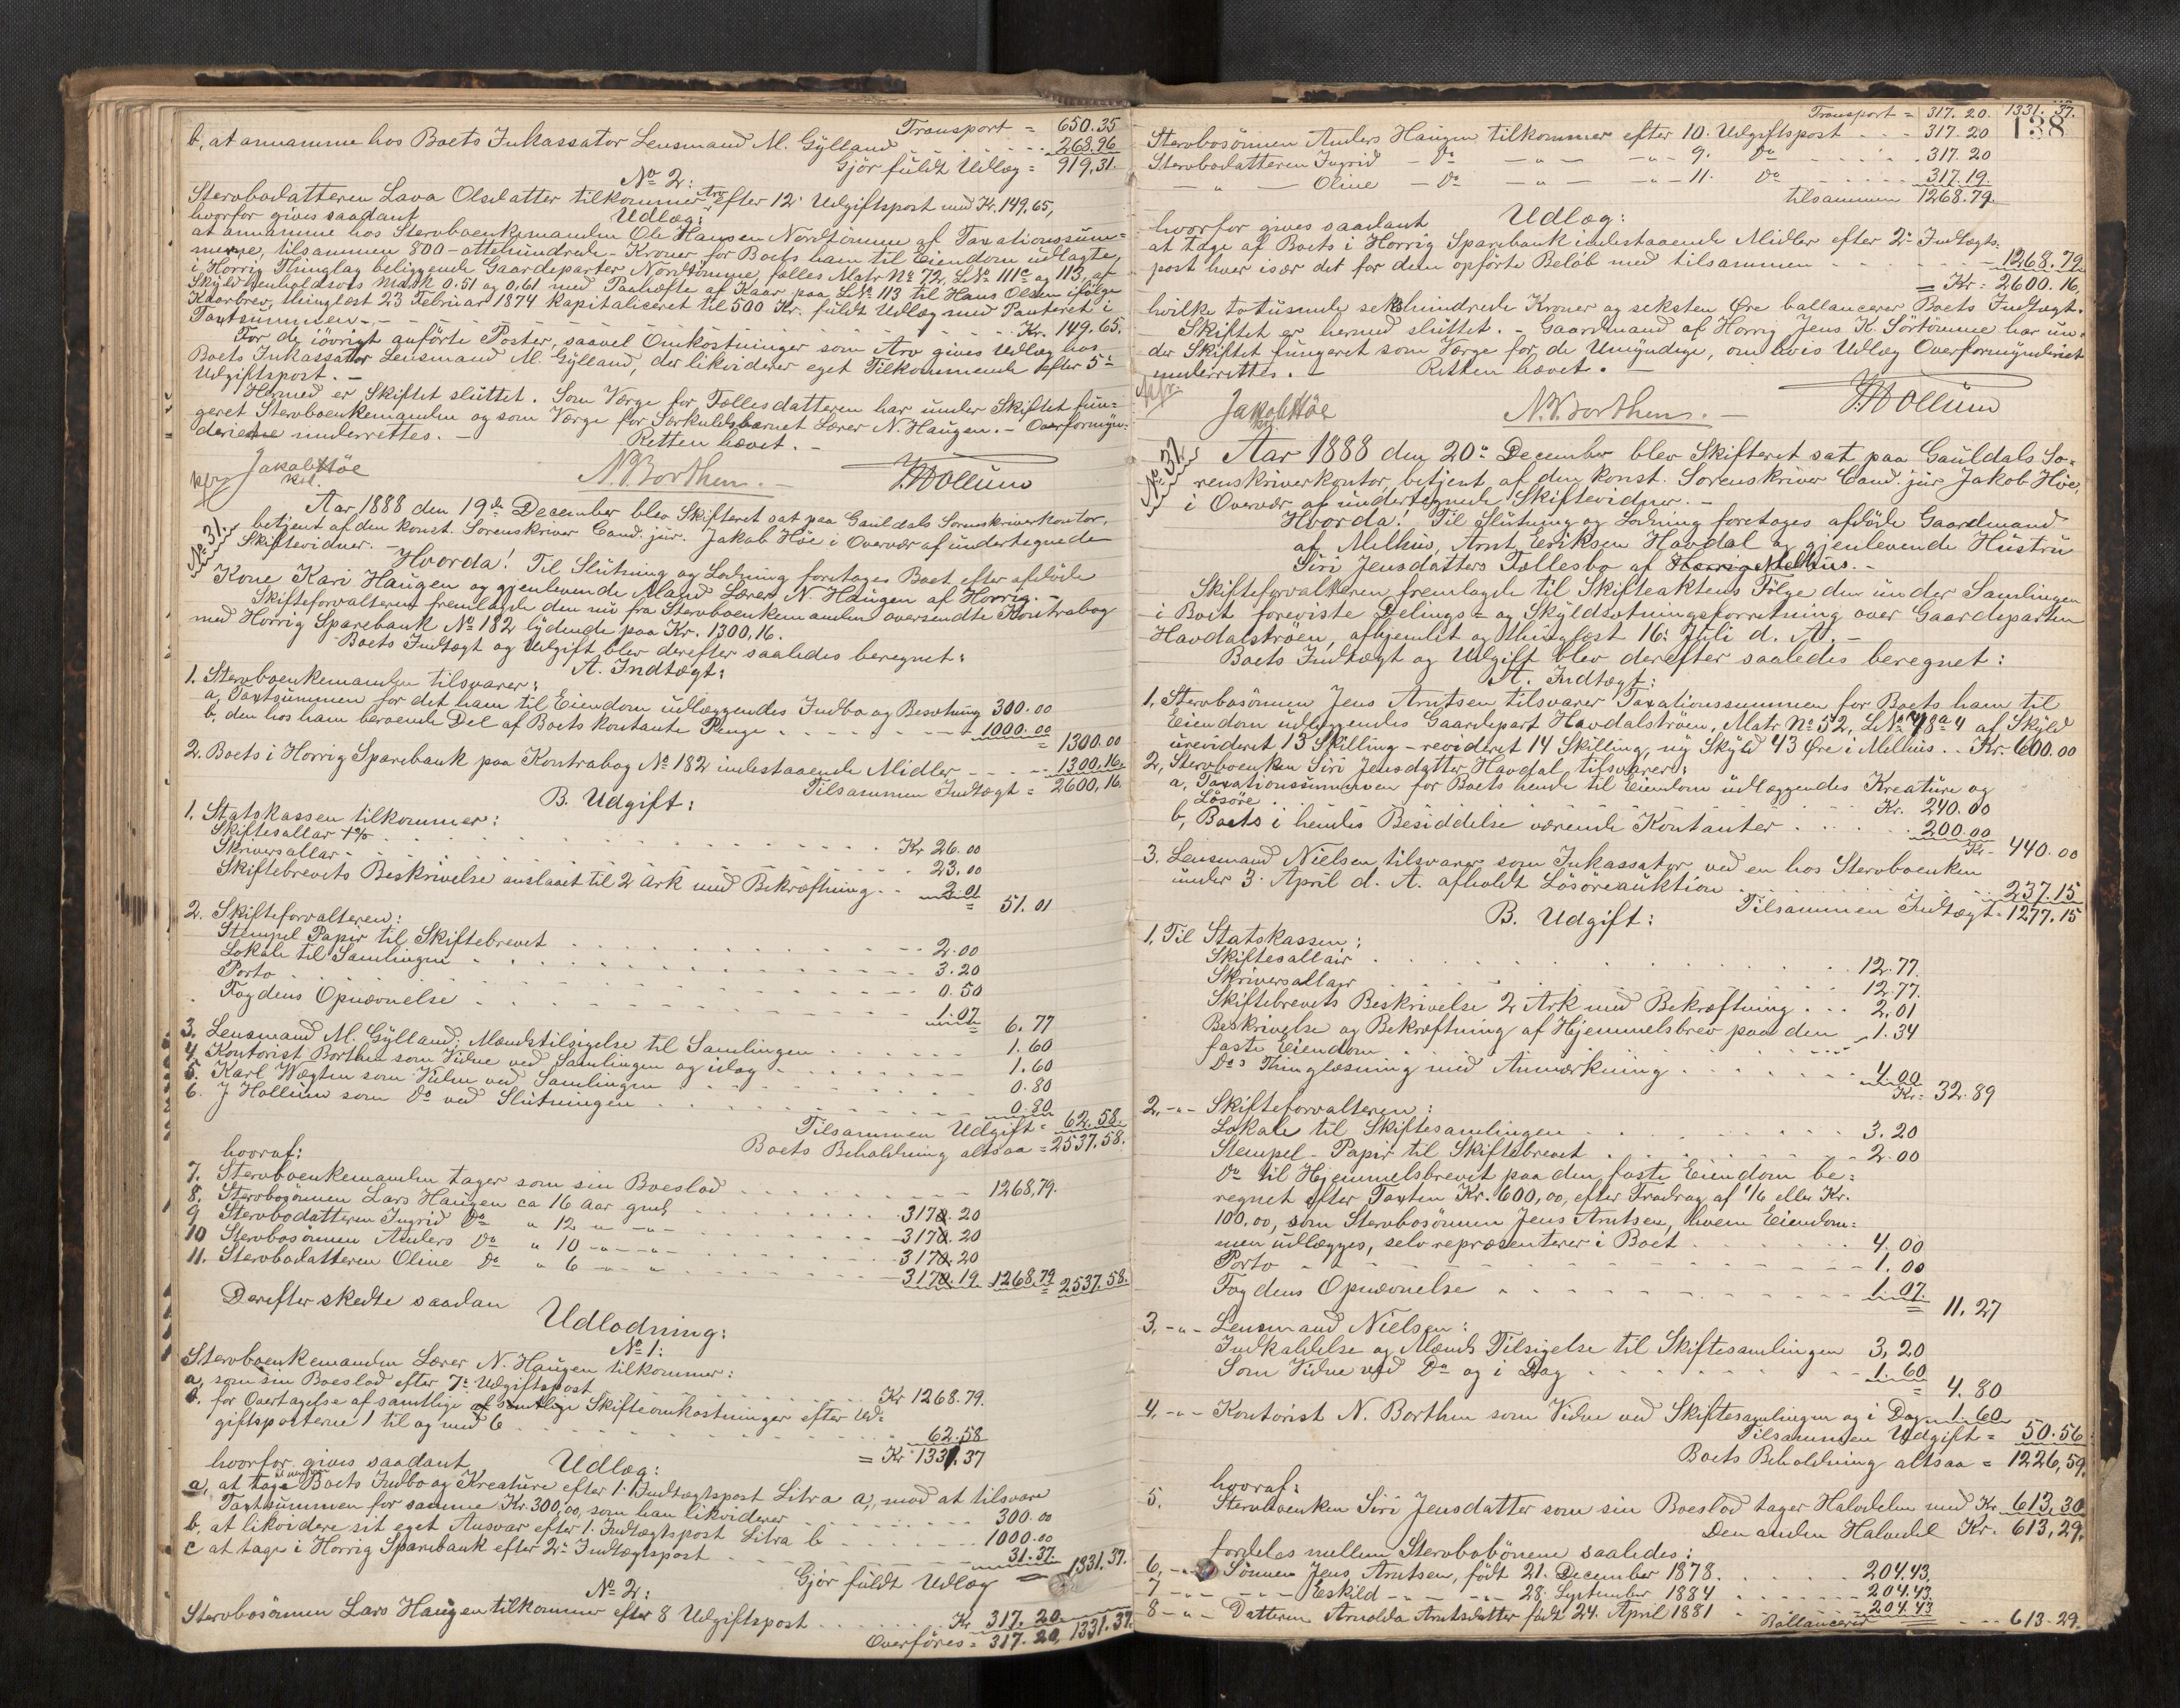 Transport = 650.35
b, at annamme hos Boets Inkassator Lensmand M. Gylland . . . . 268.96
Gjør fuldt Udlæg = 919,31.
No 2:
Stervbodatteren Lava Olsdatter tilkommer Arv efter 12te Udgiftspost med Kr. 149,65,
hvorfor gives saadant Udlæg:
at annamme hos Stervboenkemanden Ole Hansen Nordtømme af Taxationssum-
merne, tilsammen 800 - ottehundrede - Kroner for Boets ham til Eiendom udlagte,
i Horrig Thinglag beliggende Gaardeparter Nordtømme, fælles Matr No 72, LNo 111c og 113, af
Skyld henholdsvis Mark 0.51 og 0.61 med Paahefte af Kaar paa LNo 113 til Hans Olsen ifølge
Kaarbrev, thinglæst 23 Februar 1874 kapitaliceret til 500 Kr. fuldt Udlæg med Panteret i
Taxtsummen - - - - Kr. 149.65.
For de iøvrigt anførte Poster, saavel Omkostninger som Arv gives Udlæg hos
Boets Inkassator Lensmand M. Gylland, der likviderer eget Tilkommende efter 5te
Udgiftspost. -
Hermed er Skiftet sluttet. Som Værge for Fællesdatteren har under Skiftet fun-
geret Stervboenkemanden og som Værge for Særkuldsbarnet Lærer N. Haugen. - Overformyn-
deriet underrettes. - Retten hævet. -
Jakob Høe
kst.
N. Borthen. -
J. Hollum
No 31.
Aar 1888 den 19de December blev Skifteret sat paa Gauldals Sorenskriverkontor,
betjent af den konst. Sorenskriver Cand. jur. Jakob Höe i Overvær af undertegnede
Skiftevidner. -
Hvorda! Til Slutning og Lodning foretages Boet efter afdöde
Kone Kari Haugen og gjenlevende Mand Lærer N. Haugen af Horrig. -
Skifteforvalteren fremlagde den nu fra Stervboenkemanden oversendte Kontrabog
med Horrig Sparebank No 182 lydende paa Kr. 1300,16.
Boets Indtægt og Udgift blev derefter saaledes beregnet:
A. Indtægt:
1. Stervboenkemanden tilsvarer:
a, Taxtsummen for det ham til Eiendom udlæggendes Indbo og Besætning 300.00
b, den hos ham beroende Del af Boets kontante Penge . . . . 1000.00
= 1300.00
2. Boets i Horrig Sparebank paa Kontrabog No 182 indestaaende Midler - - - - 1300,16.
Tilsammen Indtægt = 2600,16.
B. Udgift:
1. Statskassen tilkommer:
Skiftesallar 1% . . . . Kr 26.00
Skriversallar - . . . . 23.00
Skiftebrevets Beskrivelse anslaaet til 2 Ark med Bekræftning . . 2.01
= 51.01
2. Skifteforvalteren:
Stempel Papir til Skiftebrevet . . . . 2.00
Lokale til Samlingen . . . . 3.20
Porto . . . . 0.50
Fogdens Opnævnelse . . . . 1.07
= 6.77
3. Lensmand M. Gylland: Mændstilsigelse til Samlingen . . . . 1.60
4. Kontorist Borthen som Vidne ved Samlingen og idag . . . . 1.60
5. Karl Wægten som Vidne ved Samlingen . . . . 0.80
6. J Hollum som Do ved Slutningen . . . . 0.80
Tilsammen Udgift = 62.58.
Boets Beholdning altsaa = 2537.58.
hvoraf:
7. Stervboenkemanden tager som sin Boeslod . . . . 1268,79.
8. Stervbosönnen Lars Haugen ca 16 Aar gml. . . . . 317.20
9 Stervbodatteren Ingrid Do " 12 " - " - . . . . 317.20
10 Stervbosönnen Anders Do " 10 - " - " - . . . . 317.20
11. Stervbodatteren Oline Do " 6 - " - " . . . . 317.19 1268,79 2537.58.
Derefter skedte saadan
Udlodning:
No 1:
Stervboenkemanden Lærer N. Haugen tilkommer:
a, som sin Boeslod efter 7de Udgiftspost . . . . Kr 1268.79.
b. for Overtagelse af samtlige af samtlige Skifteomkostninger efter Ud-
giftsposterne 1 til og med 6 . . . . 62.58
= Kr 1331.37
hvorfor gives saadant Udlæg:
a, at tage Boets Indbo og Kreature efter 1. Indtægtspost Litra a, mod at tilsvare
Taxtsummen for samme Kr. 300,00, som han likviderer . . . . 300.00
b. at likvidere sit eget Ansvar efter 1. Indtægtspost Litra b . . . . 1000.00
c at tage i Horrig Sparebank efter 2den Indtægtspost . . . . 31.37.
Gjör fuldt Udlæg = 1331.37.
No 2:
Stervbosönnen Lars Haugen tilkommer efter 8 Udgiftspost . . . . Kr 317.20
Overföres = 317.20, 1331.37.
Transport = 317.20. 1331.37.
138
Stervbosönnen Anders Haugen tilkommer efter 10. Udgiftspost . . . 317.20
Stervbodatteren Ingrid - Do - " - - " - 9. Do . . . . 317.20
- " - Oline - Do - " - - " - 11. Do . . . . 317.19.
tilsammen 1268.79.
hvorfor gives saadant Udlæg:
at tage af Boets i Horrig Sparebank indestaaende Midler efter 2den Indtægts-
post hver især det for dem opförte Belöb med tilsammen . . . . 1268.79.
= Kr. 2600.16,
hvilke totusende sekshundrede Kroner og seksten Öre ballancerer Boets Indtægt.
Skiftet er hermed sluttet. - Gaardmand af Horrig Jens K. Sörtömme har un-
der Skiftet fungeret som Værge for de Umyndige, om hvis Udlæg Overformynderiet
underrettes. - Retten hævet. -
Jakob Höe
kst.
N. Borthen. -
J. Hollum
No 37.
Aar 1888 den 20de December blev Skifteret sat paa Gauldals So-
renskriverkontor, betjent af den konst. Sorenskriver Cand. jur Jakob Höe,
i Overvær af undertegnede Skiftevidner. -
Hvorda! Til Slutning og Lodning foretages afdöde Gaardmand
af Melhus, Arnt Eriksen Havdal og gjenlevende Hustru
Siri Jensdatters Fællesbo af Horrig Melhus. -
Skifteforvalteren fremlagde til Skifteaktens Fölge den under Samlingen
i Boet foreviste Delings- og Skyldsætningsforretning over Gaardeparten
Havdalströen, afhjemlet og thinglæst 16. Juli d. A. -
Boets Indtægt og Udgift blev derefter saaledes beregnet:
A. Indtægt:
1, Stervbosönnen Jens Arntsen tilsvarer Taxationssummen for Boets ham til
Eiendom udlæggendes Gaardepart Havdalströen, Matr No 52, LNo 98a4 af Skyld
urevideret 13 Skilling - revideret 14 Skilling, ny Skyld 43 Øre i Melhus . . Kr. 600.00
2, Stervboenken Siri Jensdatter Havdal tilsvarer:
a, Taxationssummen for Boets hende til Eiendom udlæggendes Kreature og
Lösöre . . . . Kr. 240.00
b, Boets i hendes Besiddelse værende Kontanter . . . . 200.00
Kr - 440.00
3. Lensmand Nielsen tilsvarer som Inkassator ved en hos Stervboenken
under 3. April d. A. afholdt Lösöreauktion . . . . 237.15
Tilsammen Indtægt = 1277.15
B. Udgift:
1, Til Statskassen:
Skiftesallair . . . . 12.77.
Skriversallair . . . . 12.77.
Skiftebrevets Beskrivelse 2 Ark med Bekræftning . . . 2,01
Beskrivelse og Bekræftning af Hjemmelsbrev paa den
faste Eiendom . . . . 1.34
Dos Thinglæsning med Anmærkning . . . . 4.00
Kr. 32.89
2, - " - Skifteforvalteren:
Lokale til Skiftesamlingen . . . . 3.20
Stempel - Papir til Skiftebrevet . . . . 2.00
Do til Hjemmelsbrevet paa den faste Eiendom be-
regnet efter Taxten Kr. 600,00, efter Fradrag af 1/6 eller Kr.
100.00, som Stervbosönnen Jens Arntsen, hvem Eiendom-
men udlægges, selv repræsenterer i Boet . . . . 4.00
Porto . . . . 1.00
Fogdens Opnævnelse . . . . 1.07.
= 11.27
3, - " - Lensmand Nielsen:
Indkaldelse og Mænds Tilsigelse til Skiftesamlingen 3,20
Som Vidne ved Do og i Dag . . . . 1.60
= 4.80
4, - " - Kontorist N. Borthen som Vidne ved Skiftesamlingen og i Dag 1.60
Tilsammen Udgift = 50.56
Boets Beholdning altsaa = 1226,59.
hvoraf:
5. Stervboenken Siri Jensdatter som sin Boeslod tager Halvdelen med Kr. 613,30
Den anden Halvdel Kr. 613,29.
fordeles mellem Stervbobönene saaledes:
6, - " - Sönnen Jens Arntsen, födt 21. December 1878. . . . 204.43.
7 - " - - " - Eskild - " - - " - 28. September 1884 . . . . 204.43.
8 - " - Datteren Arnolda Arntsdatter födt 24. April 1881 . . . . 204.43
Ballancerer - - 613.29.